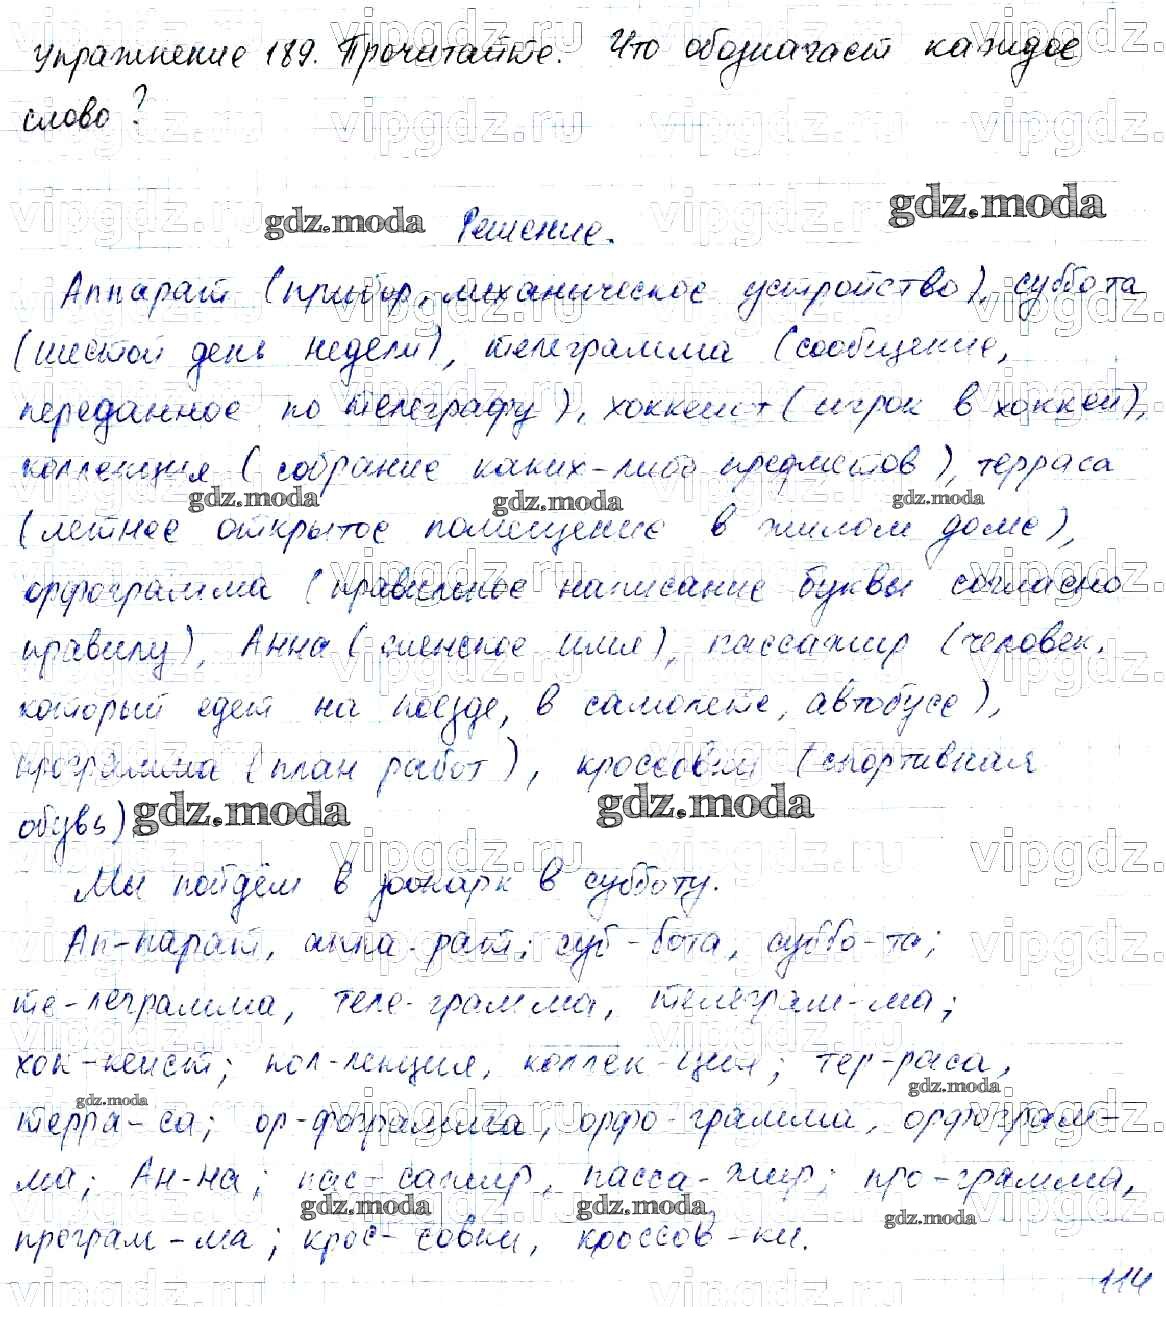 Упражнение 189. Прочитайте. Что обозначает каждое
слово?
gdz.moda Решение. gdz.moda
Аппарат (прибор, механическое устройство), суббота
(шестой день недели), телеграмма (сообщение,
переданное по телеграфу), хоккеист (игрок в хоккей),
коллекция (собрание каких-либо предметов), терраса
gdz.moda gdz.moda gdz.moda
(летнее открытое помещение в жилом доме),
орфограмма (правильное написание буквы согласно
правилу), Анна (женское имя), пассажир (человек,
который едет на поезде, в самолете, автобусе),
программа (план работ), кроссовки (спортивная
обувь). gdz.moda gdz.moda
Мы пойдём в зоопарк в субботу.
Ап-парат, аппа-рат; суб-бота, суббо-та;
те-леграмма, теле-грамма, телеграм-ма;
хок-кеист; кол-лекция, коллек-ция; тер-раса,
gdz.moda gdz.moda
терра-са; ор-фограмма, орфо-грамма, орфограм-
ма; Ан-на; пас-сажир, пасса-жир; про-грамма,
gdz.moda gdz.moda gdz.moda
програм-ма; крос-совки, кроссов-ки.
114